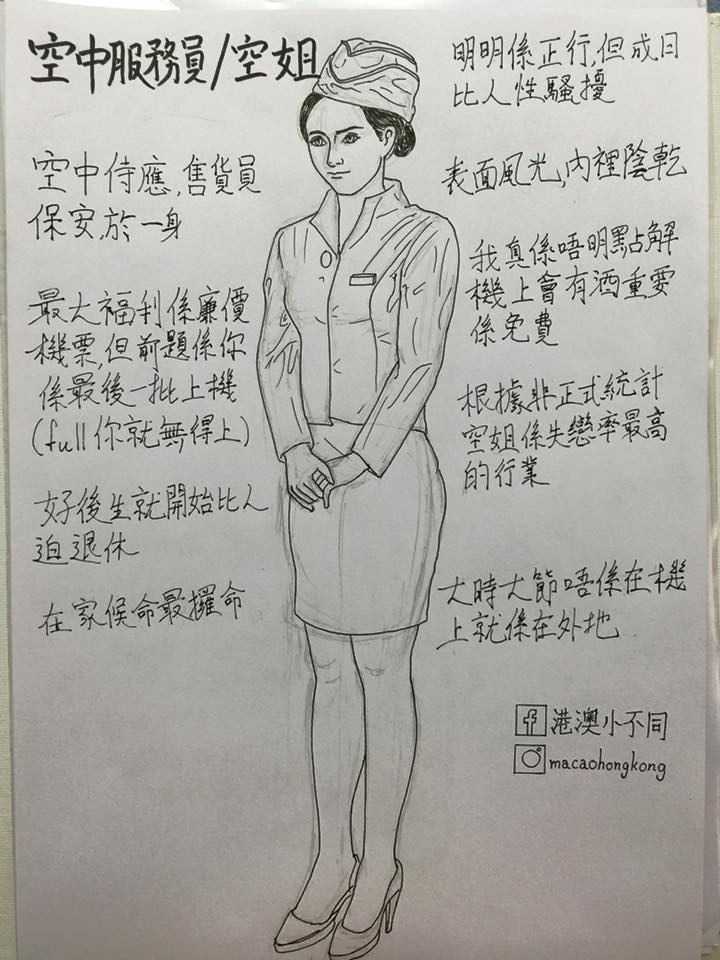 空中服務員/空姐
空中侍應,售貨員
保安,於一身
最大福利係廉價
機票,但前題係你
係最後一批上機
(full你就無得上)
好後生就開始比人
迫退休
在家候命最攞命
明明係正行,但成日
比人性騷擾
表面風光,內裡陰乾
我真係唔明點解
機上會有酒重要
係免費
根據非正式統計
空姐係失戀率最高
的行業
大時大節唔係在機
上就係在外地
港澳小不同
macaohongkong